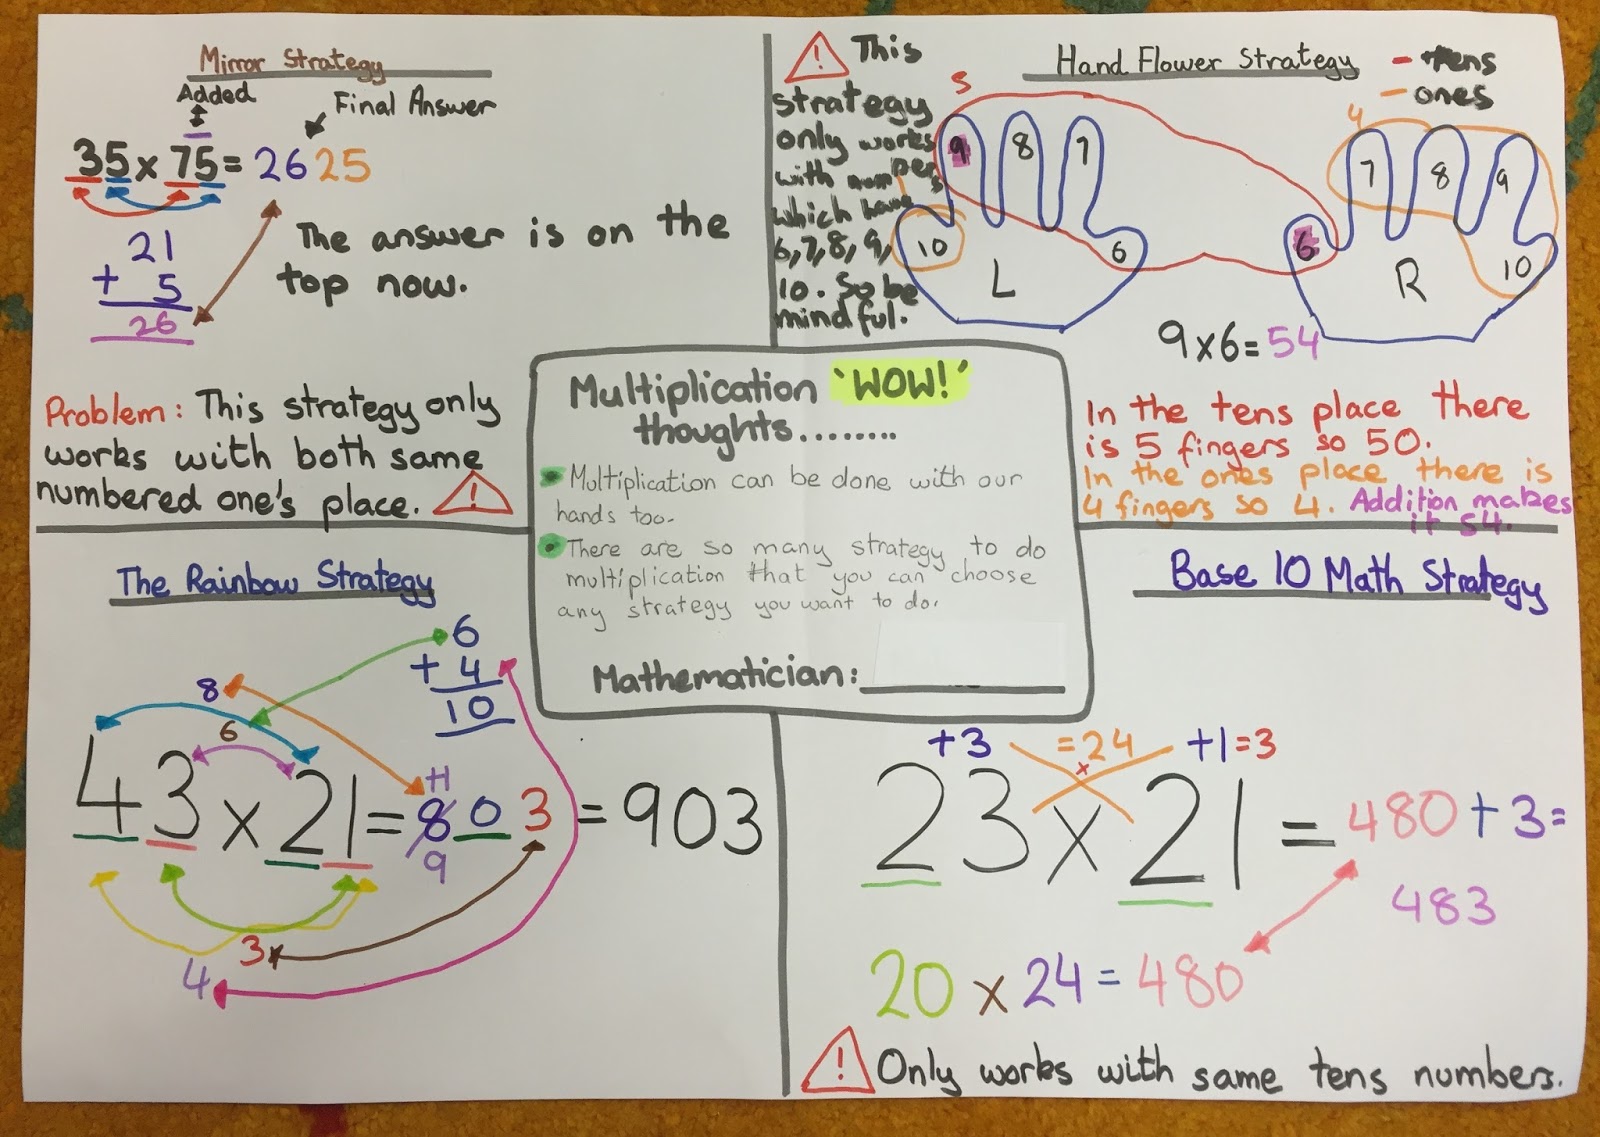 Mirror Strategy
Added
Final Answer
35 x 75 = 2625
21
+ 5
26
The answer is on the
top now.
Problem: This strategy only
works with both same
numbered one's place.
!
! This
strategy
only works
with numbers
which have
6,7,8,9,
10. So be
mindful.
Hand Flower Strategy
- tens
- ones
5
9 8 7
10 6
L
4
7 8 9
6 10
R
9x6=54
In the tens place there
is 5 fingers so 50.
In the ones place there is
4 fingers so 4. Addition makes
it 54.
Multiplication 'WOW!'
thoughts........
Multiplication can be done with our
hands too.
There are so many strategy to do
multiplication that you can choose
any strategy you want to do.
Mathematician:
The Rainbow Strategy
6
+ 4
10
8
6
+1
43 x 21 = 803 = 903
9
3
4
Base 10 Math Strategy
+3 =24 +1=3
x
23 x 21 = 480+3=
483
20 x 24 = 480
! Only works with same tens numbers.